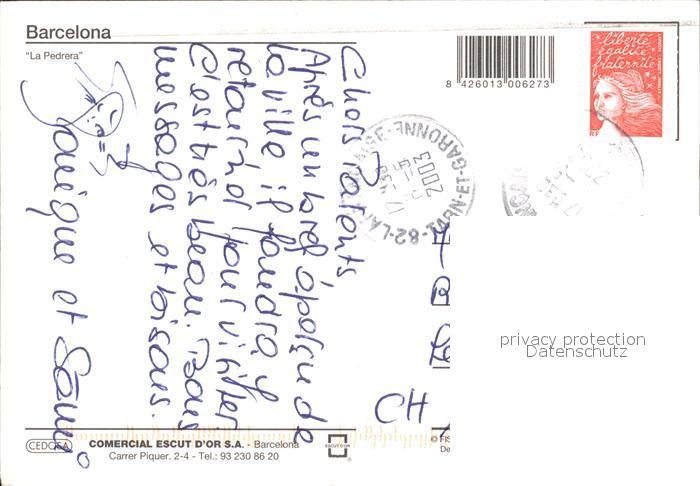 Barcelona
"La Pedrera"
Chers Parents
Après un bref aperçu de
la ville il faudra y
retourner pour visiter.
C'est très beau. Bons
messages et bisous.
et
8 426013 006273
liberté
égalité
fraternité
RF
82-
TARN-ET-GARONNE
2003
CH
privacy protection
Datenschutz
CEDOSA
COMERCIAL ESCUT D'OR S.A. - Barcelona
Carrer Piquer. 2-4 - Tel.: 93 230 86 20
ESCUT D'OR
© FIS
De